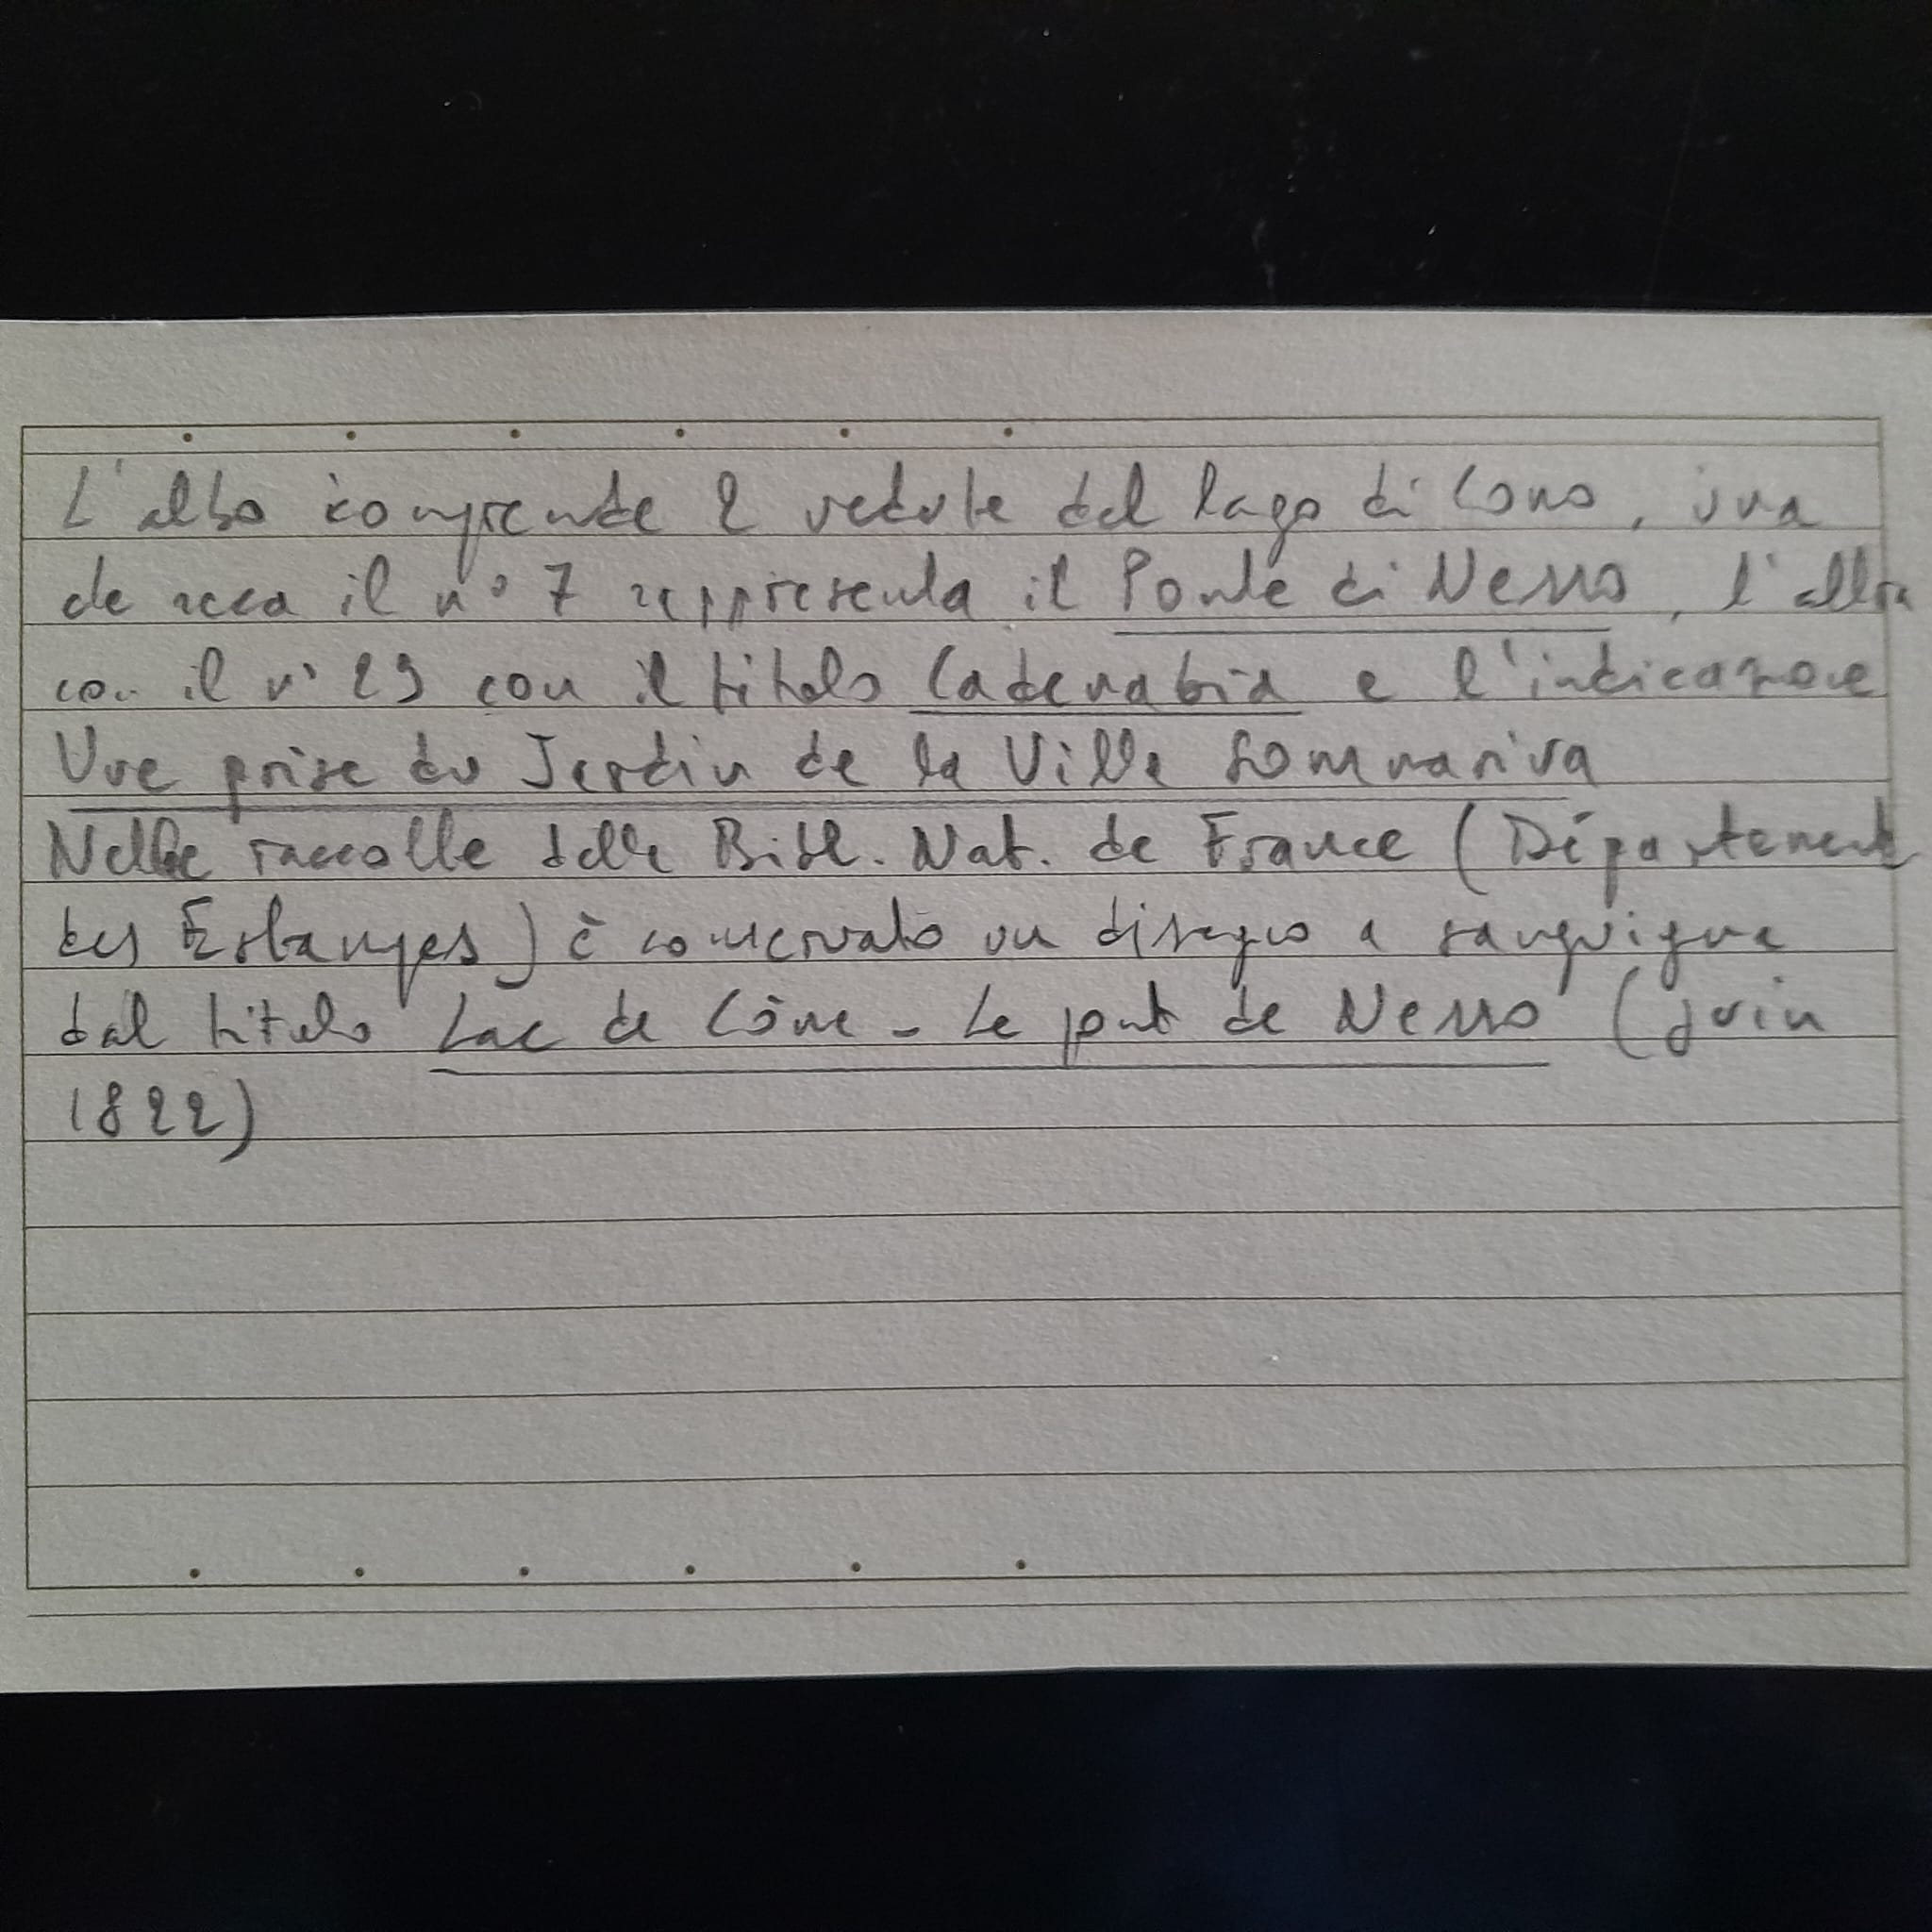 L'albo comprende 2 vedute del lago di Como, una
che reca il n° 7 rappresenta il Ponte di Nesso, l'altra
con il n° 29 con il titolo Cadenabia e l'indicazione
Vue prise du Jardin de la Villa Sommariva
Nelle raccolte della Bibl. Nat. de France (Département
des Estampes) è conservato un disegno a sanguigna
dal titolo Lac de Côme - Le pont de Nesso (juin
1822)